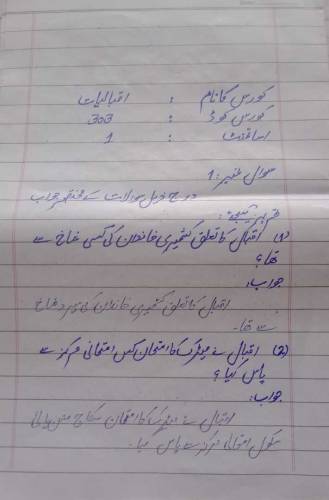 کورس کا نام : اقبالیات
کورس کوڈ : 303
اسائنمنٹ : 1
سوال نمبر: 1
درج ذیل سوالات کے مختصر جواب
تحریر کیجیے۔
(1) اقبال کا تعلق کشمیری خاندان کی کس شاخ سے
تھا؟
جواب:
اقبال کا تعلق کشمیری خاندان کی شاخ
سے تھا۔
(2) اقبال نے میٹرک کا امتحان کس امتحانی مرکز سے
پاس کیا؟
جواب:
اقبال نے میٹرک کا امتحان سکاچ مشن ہائی
سکول امتحانی مرکز سے پاس کیا۔